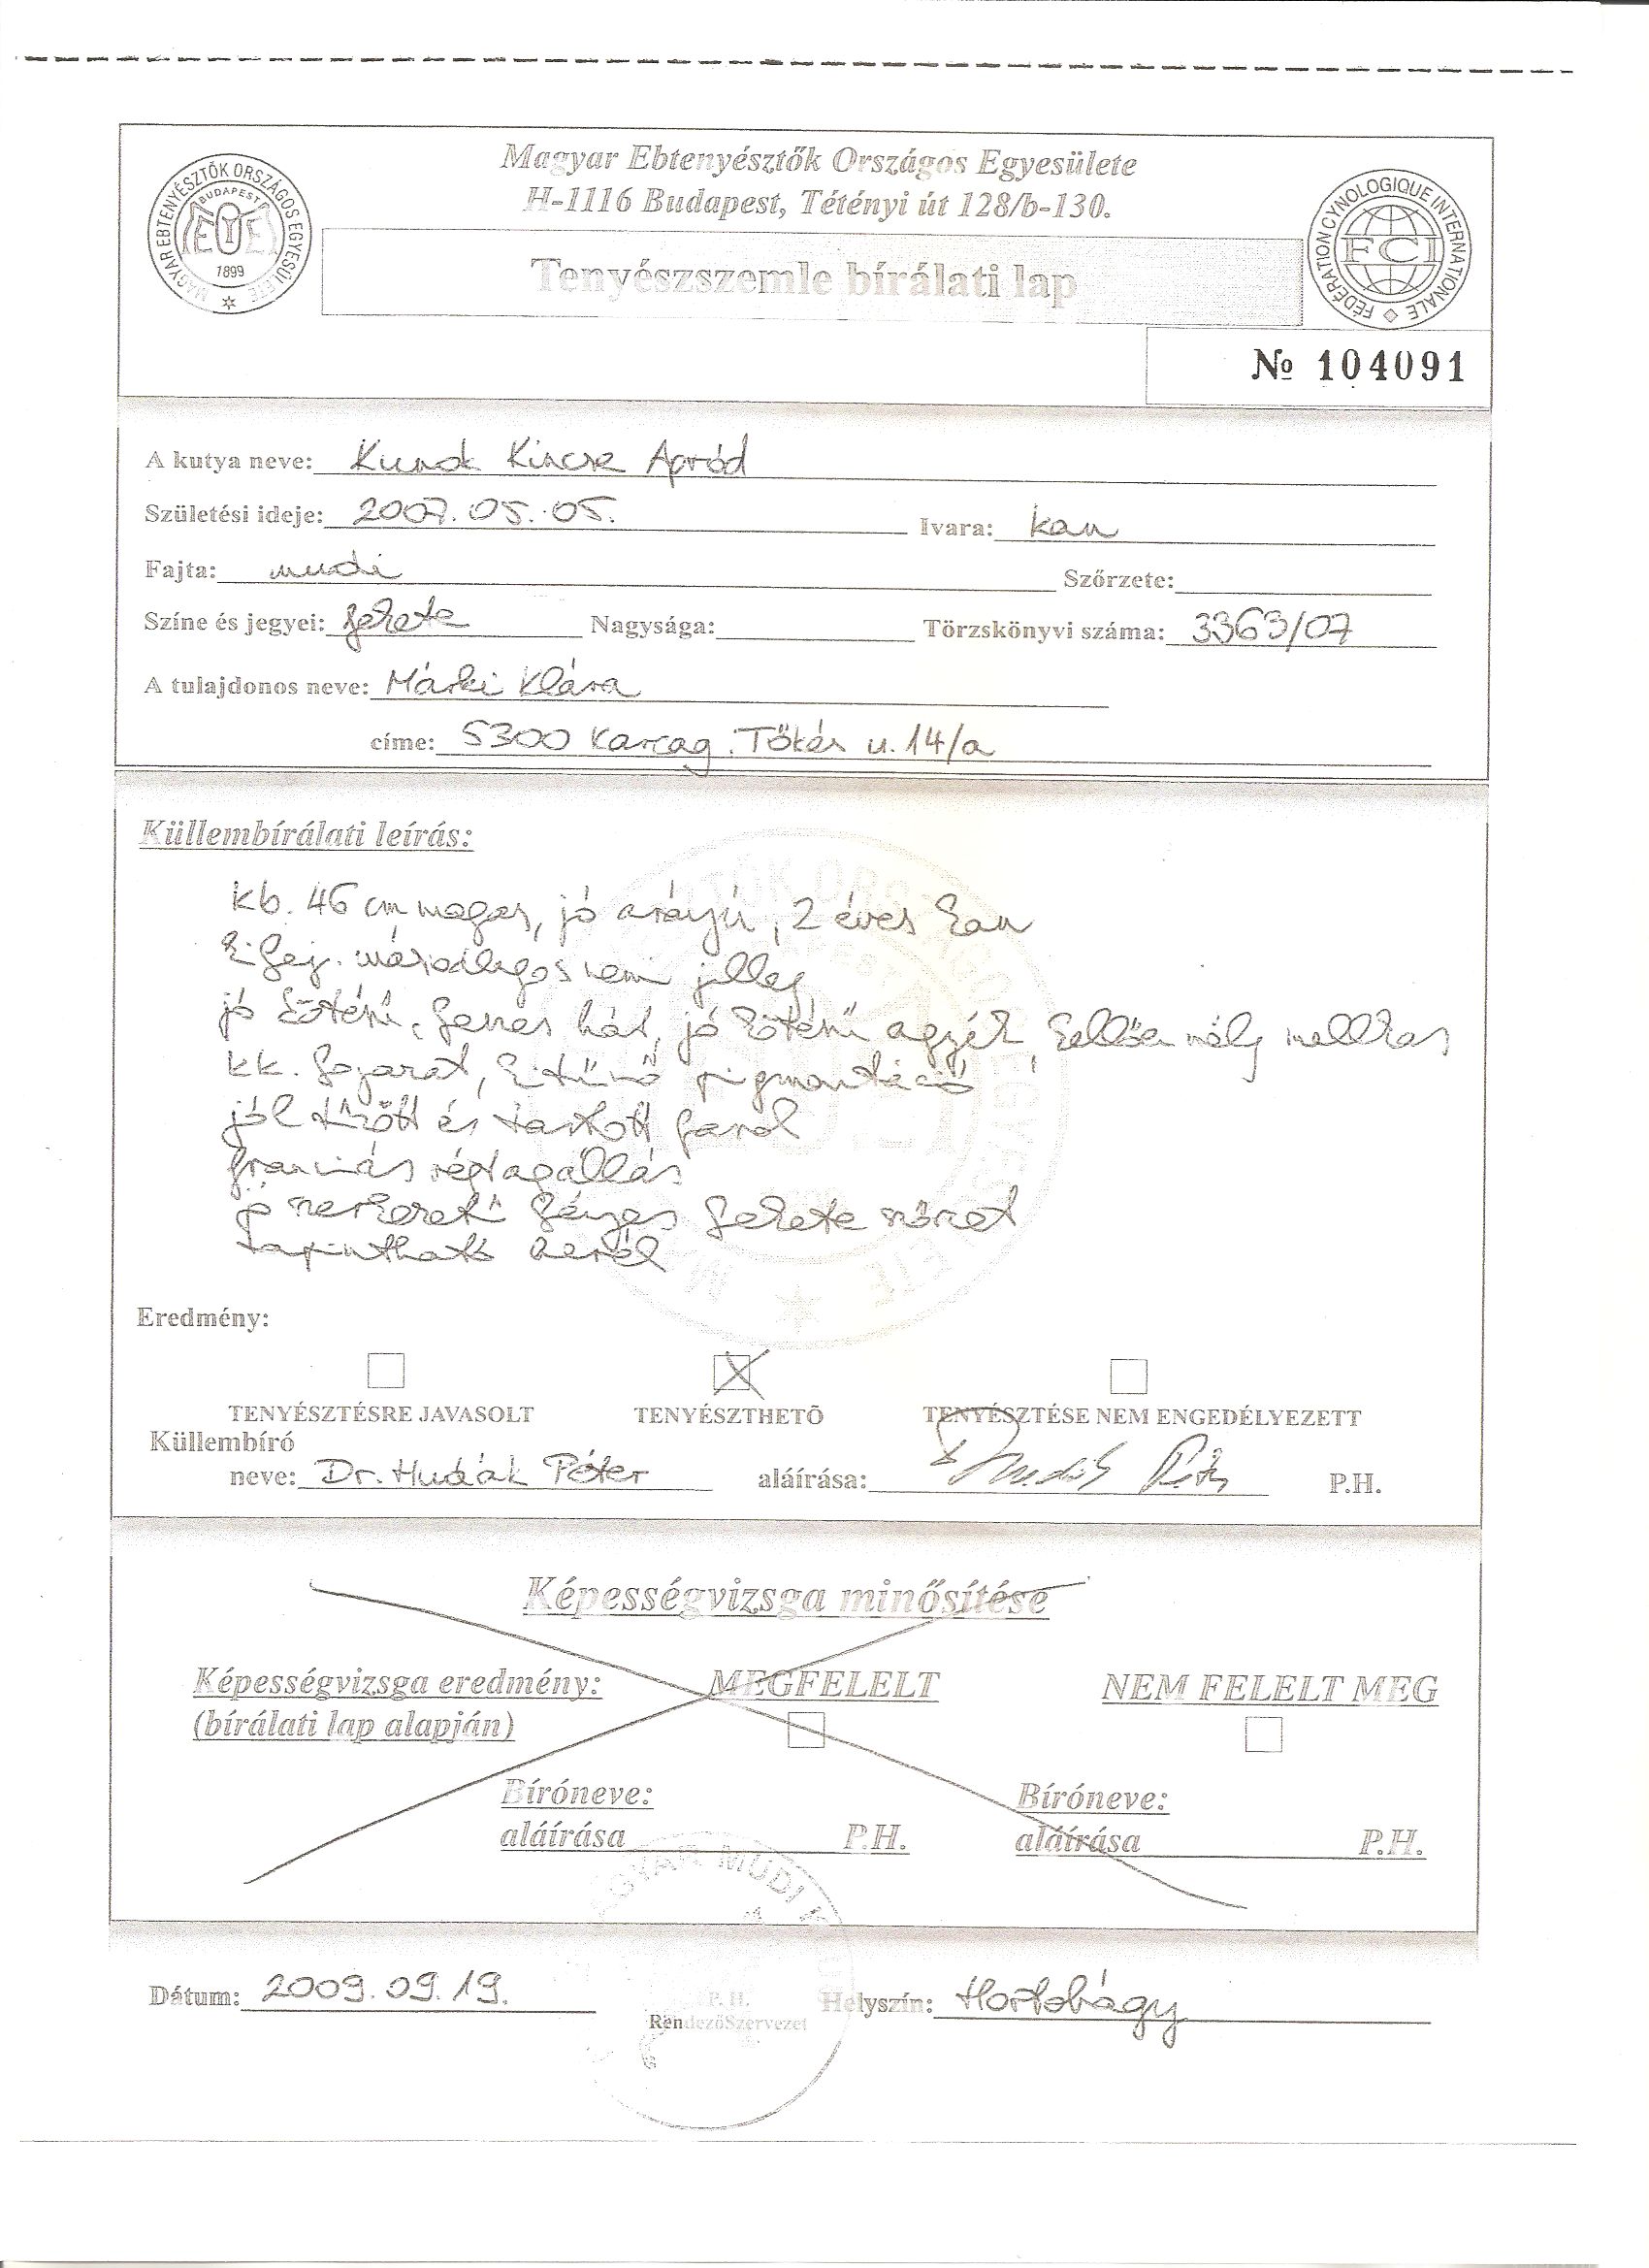 MAGYAR EBTENYÉSZTŐK ORSZÁGOS EGYESÜLETE
BUDAPEST
1899
Magyar Ebtenyésztők Országos Egyesülete
H-1116 Budapest, Tétényi út 128/b-130.
Tenyészszemle bírálati lap
FÉDÉRATION CYNOLOGIQUE INTERNATIONALE
FCI
№ 104091
A kutya neve: Kunok Kincse Apród
Születési ideje: 2007.05.05. Ivara: kan
Fajta: mudi Szőrzete:
Színe és jegyei: fekete Nagysága: Törzskönyvi száma: 3363/07
A tulajdonos neve: Márki Klára
címe: 5300 Karcag. Tőkés u. 14/a
Küllembírálati leírás:
kb. 46 cm magas, jó arányú, 2 éves kan
kifej. másodlagos nemi jelleg
jó kötésű, feszes hát, jó kötésű ágyék, kellően mély mellkas
kk. fogazat, kitűnő pigmentáció
jól tűzött és tartott farok
franciás végtagállás
jó szerkezetű fényes fekete szőrzet
tapintható herék
Eredmény:
TENYÉSZTÉSRE JAVASOLT TENYÉSZTHETŐ TENYÉSZTÉSE NEM ENGEDÉLYEZETT
Küllembíró
neve: Dr. Hudák Péter aláírása: P.H.
Képességvizsga minősítése
Képességvizsga eredmény: MEGFELELT NEM FELELT MEG
(bírálati lap alapján)
Bíróneve: Bíróneve:
aláírása P.H. aláírása P.H.
MAGYAR MUDI
Dátum: 2009.09.19. P.H. Helyszín: Hortobágy
RendezőSzervezet